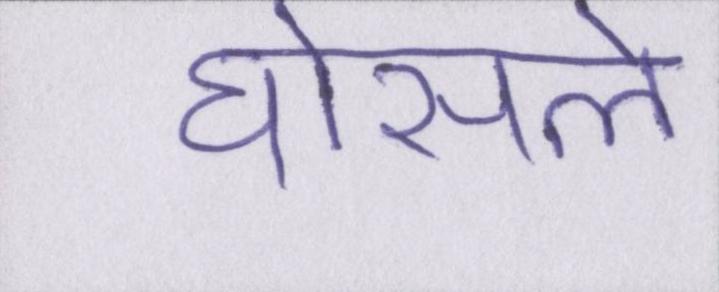 घोसले